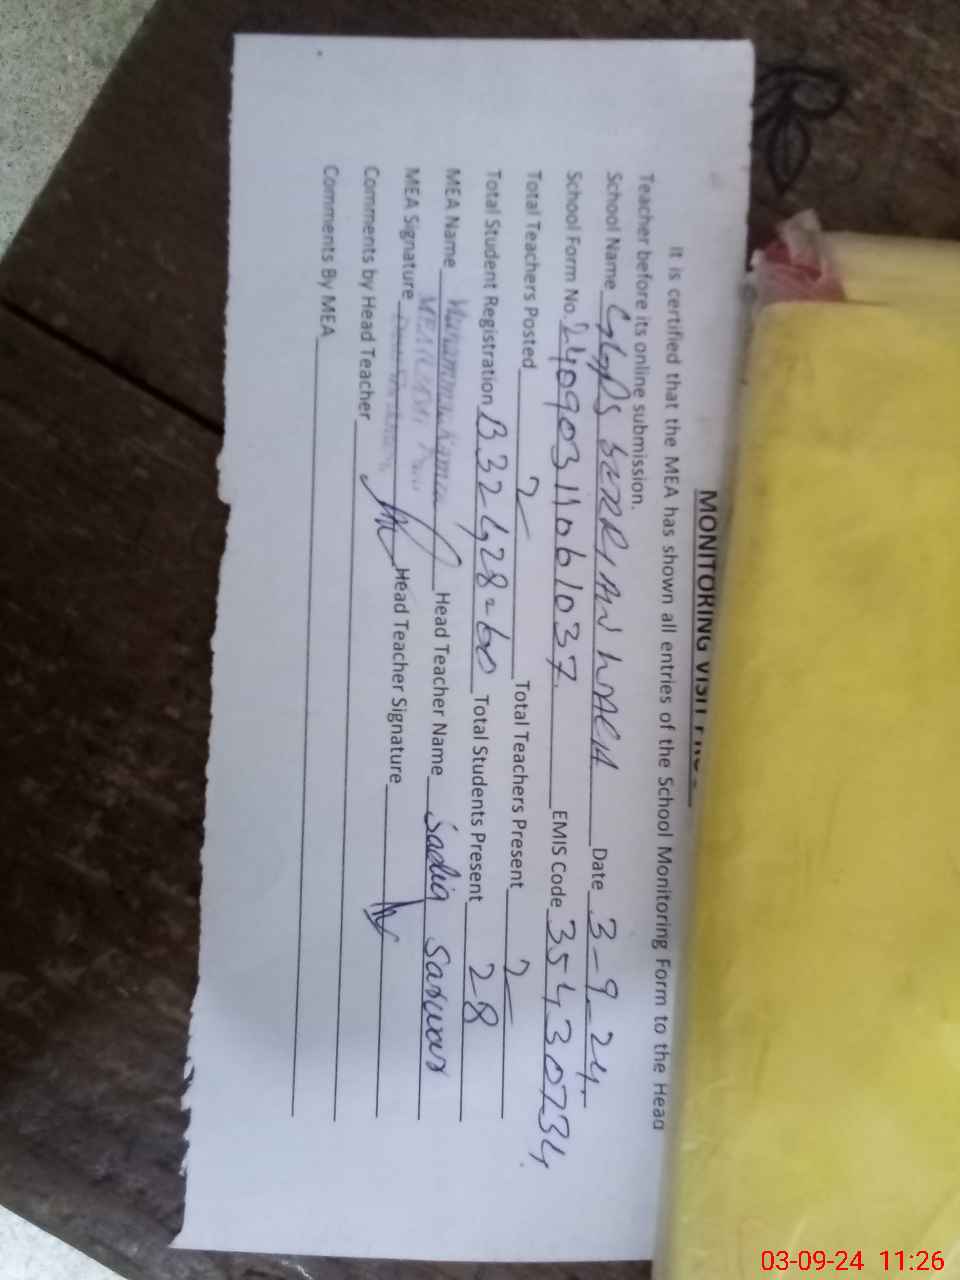 MONITORING VISIT
It is certified that the MEA has shown all entries of the School Monitoring Form to the Head
Teacher before its online submission.
School Name GGPS BURRIANWALA Date 3-9-24.
School Form No. 24090311061037. EMIS Code 35430734.
Total Teachers Posted 2 Total Teachers Present 2
Total Student Registration B32 G28=60 Total Students Present 28
MEA Name Muhammad Head Teacher Name Sadia Sarwar
MEA Signature Head Teacher Signature
Comments by Head Teacher
Comments By MEA
03-09-24 11:26